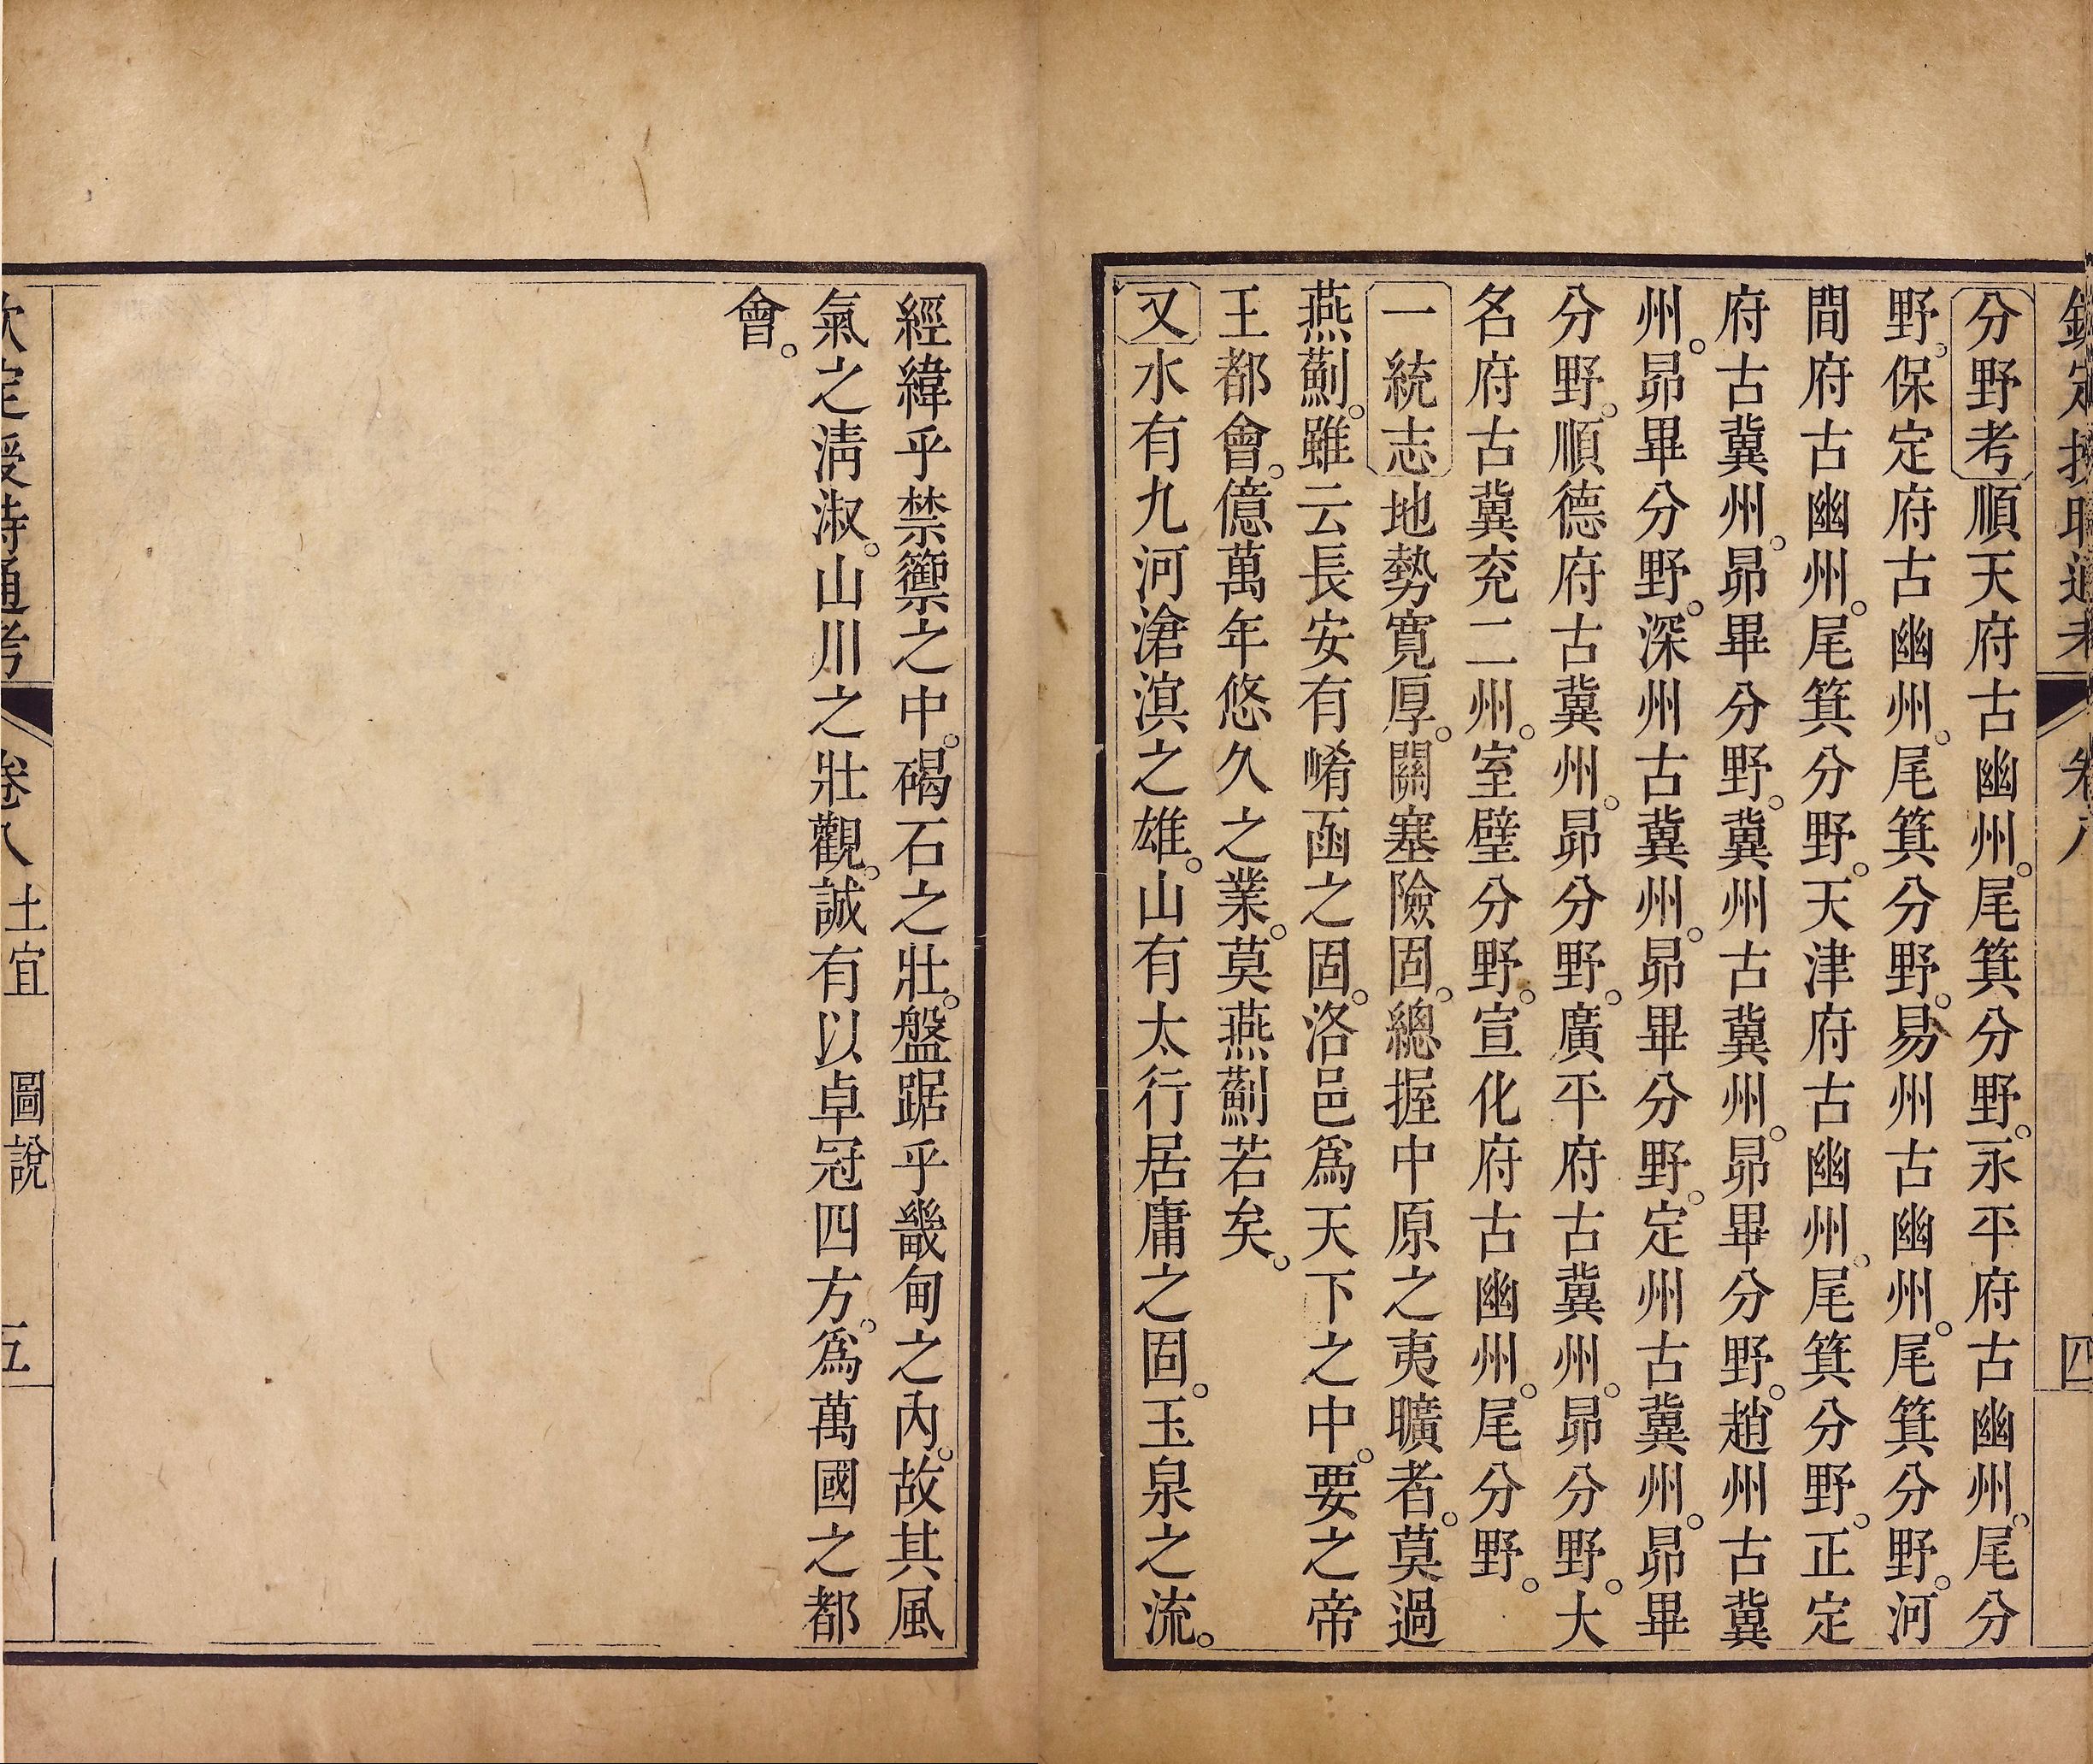 欽定授時通考 卷八 四
分野考順天府古幽州。尾箕分野。永平府古幽州。尾分
野。保定府古幽州。尾箕分野。易州古幽州。尾箕分野。河
間府古幽州。尾箕分野。天津府古幽州。尾箕分野。正定
府古冀州。昴畢分野。冀州古冀州。昴畢分野。趙州古冀
州。昴畢分野。深州古冀州。昴畢分野。定州古冀州。昴畢
分野。順德府古冀州。昴分野。廣平府古冀州。昴分野。大
名府古冀兗二州。室壁分野。宣化府古幽州。尾分野。
一統志地勢寬厚。關塞險固。總握中原之夷曠者。莫過
燕薊。雖云長安有崤函之固。洛邑爲天下之中。要之帝
王都會。億萬年悠久之業。莫燕薊若矣。
又水有九河滄溟之雄。山有太行居庸之固。玉泉之流。
經緯乎禁籞之中。碣石之壯。盤踞乎畿甸之內。故其風
氣之淸淑。山川之壯觀。誠有以卓冠四方。爲萬國之都
會。
欽定授時通考 卷八 土宜 圖說 五